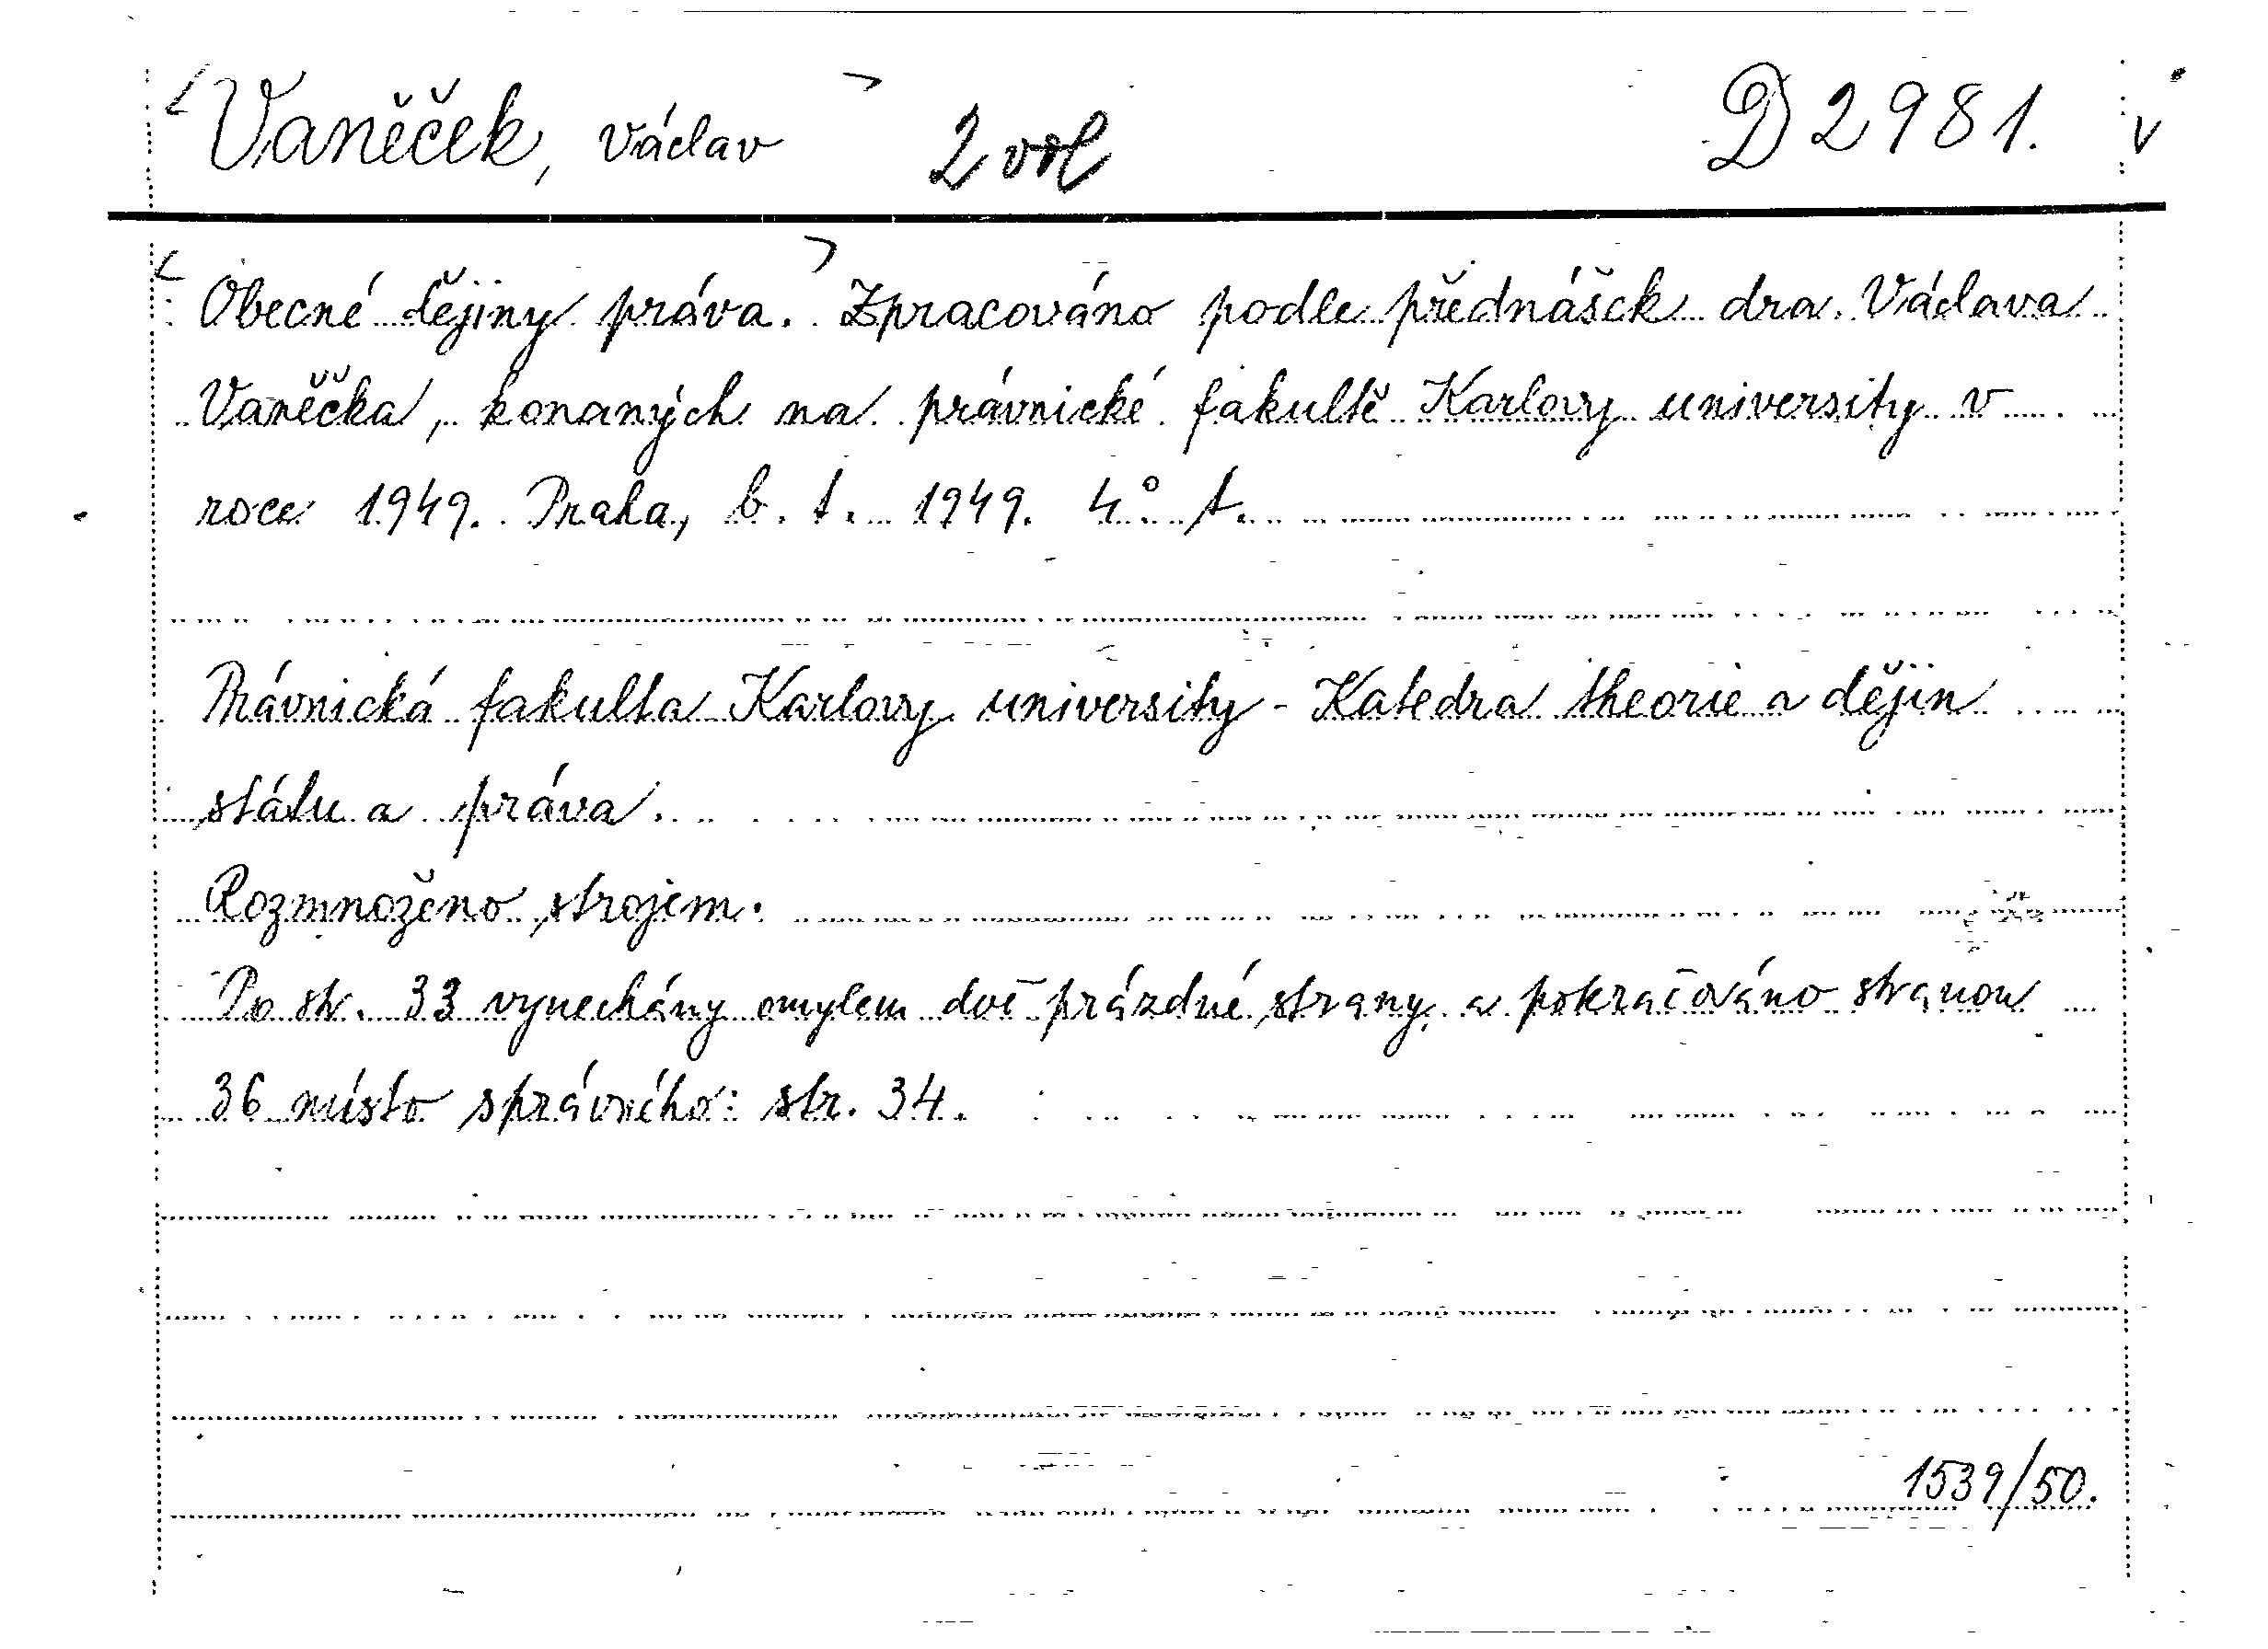 Vaněček, Václav 2 vol D 2981. v
Obecné dějiny práva. Zpracováno podle přednášek dra. Václava
Vaněčka, konaných na právnické fakultě Karlovy university v
roce 1949. Praha, b. t. 1949. 4° t.
Právnická fakulta Karlovy university - Katedra theorie a dějin
státu a práva.
Rozmnoženo strojem.
Po str. 33 vynechány omylem dvě prázdné strany a pokračováno stranou
36 místo správného: str. 34.
1539/50.